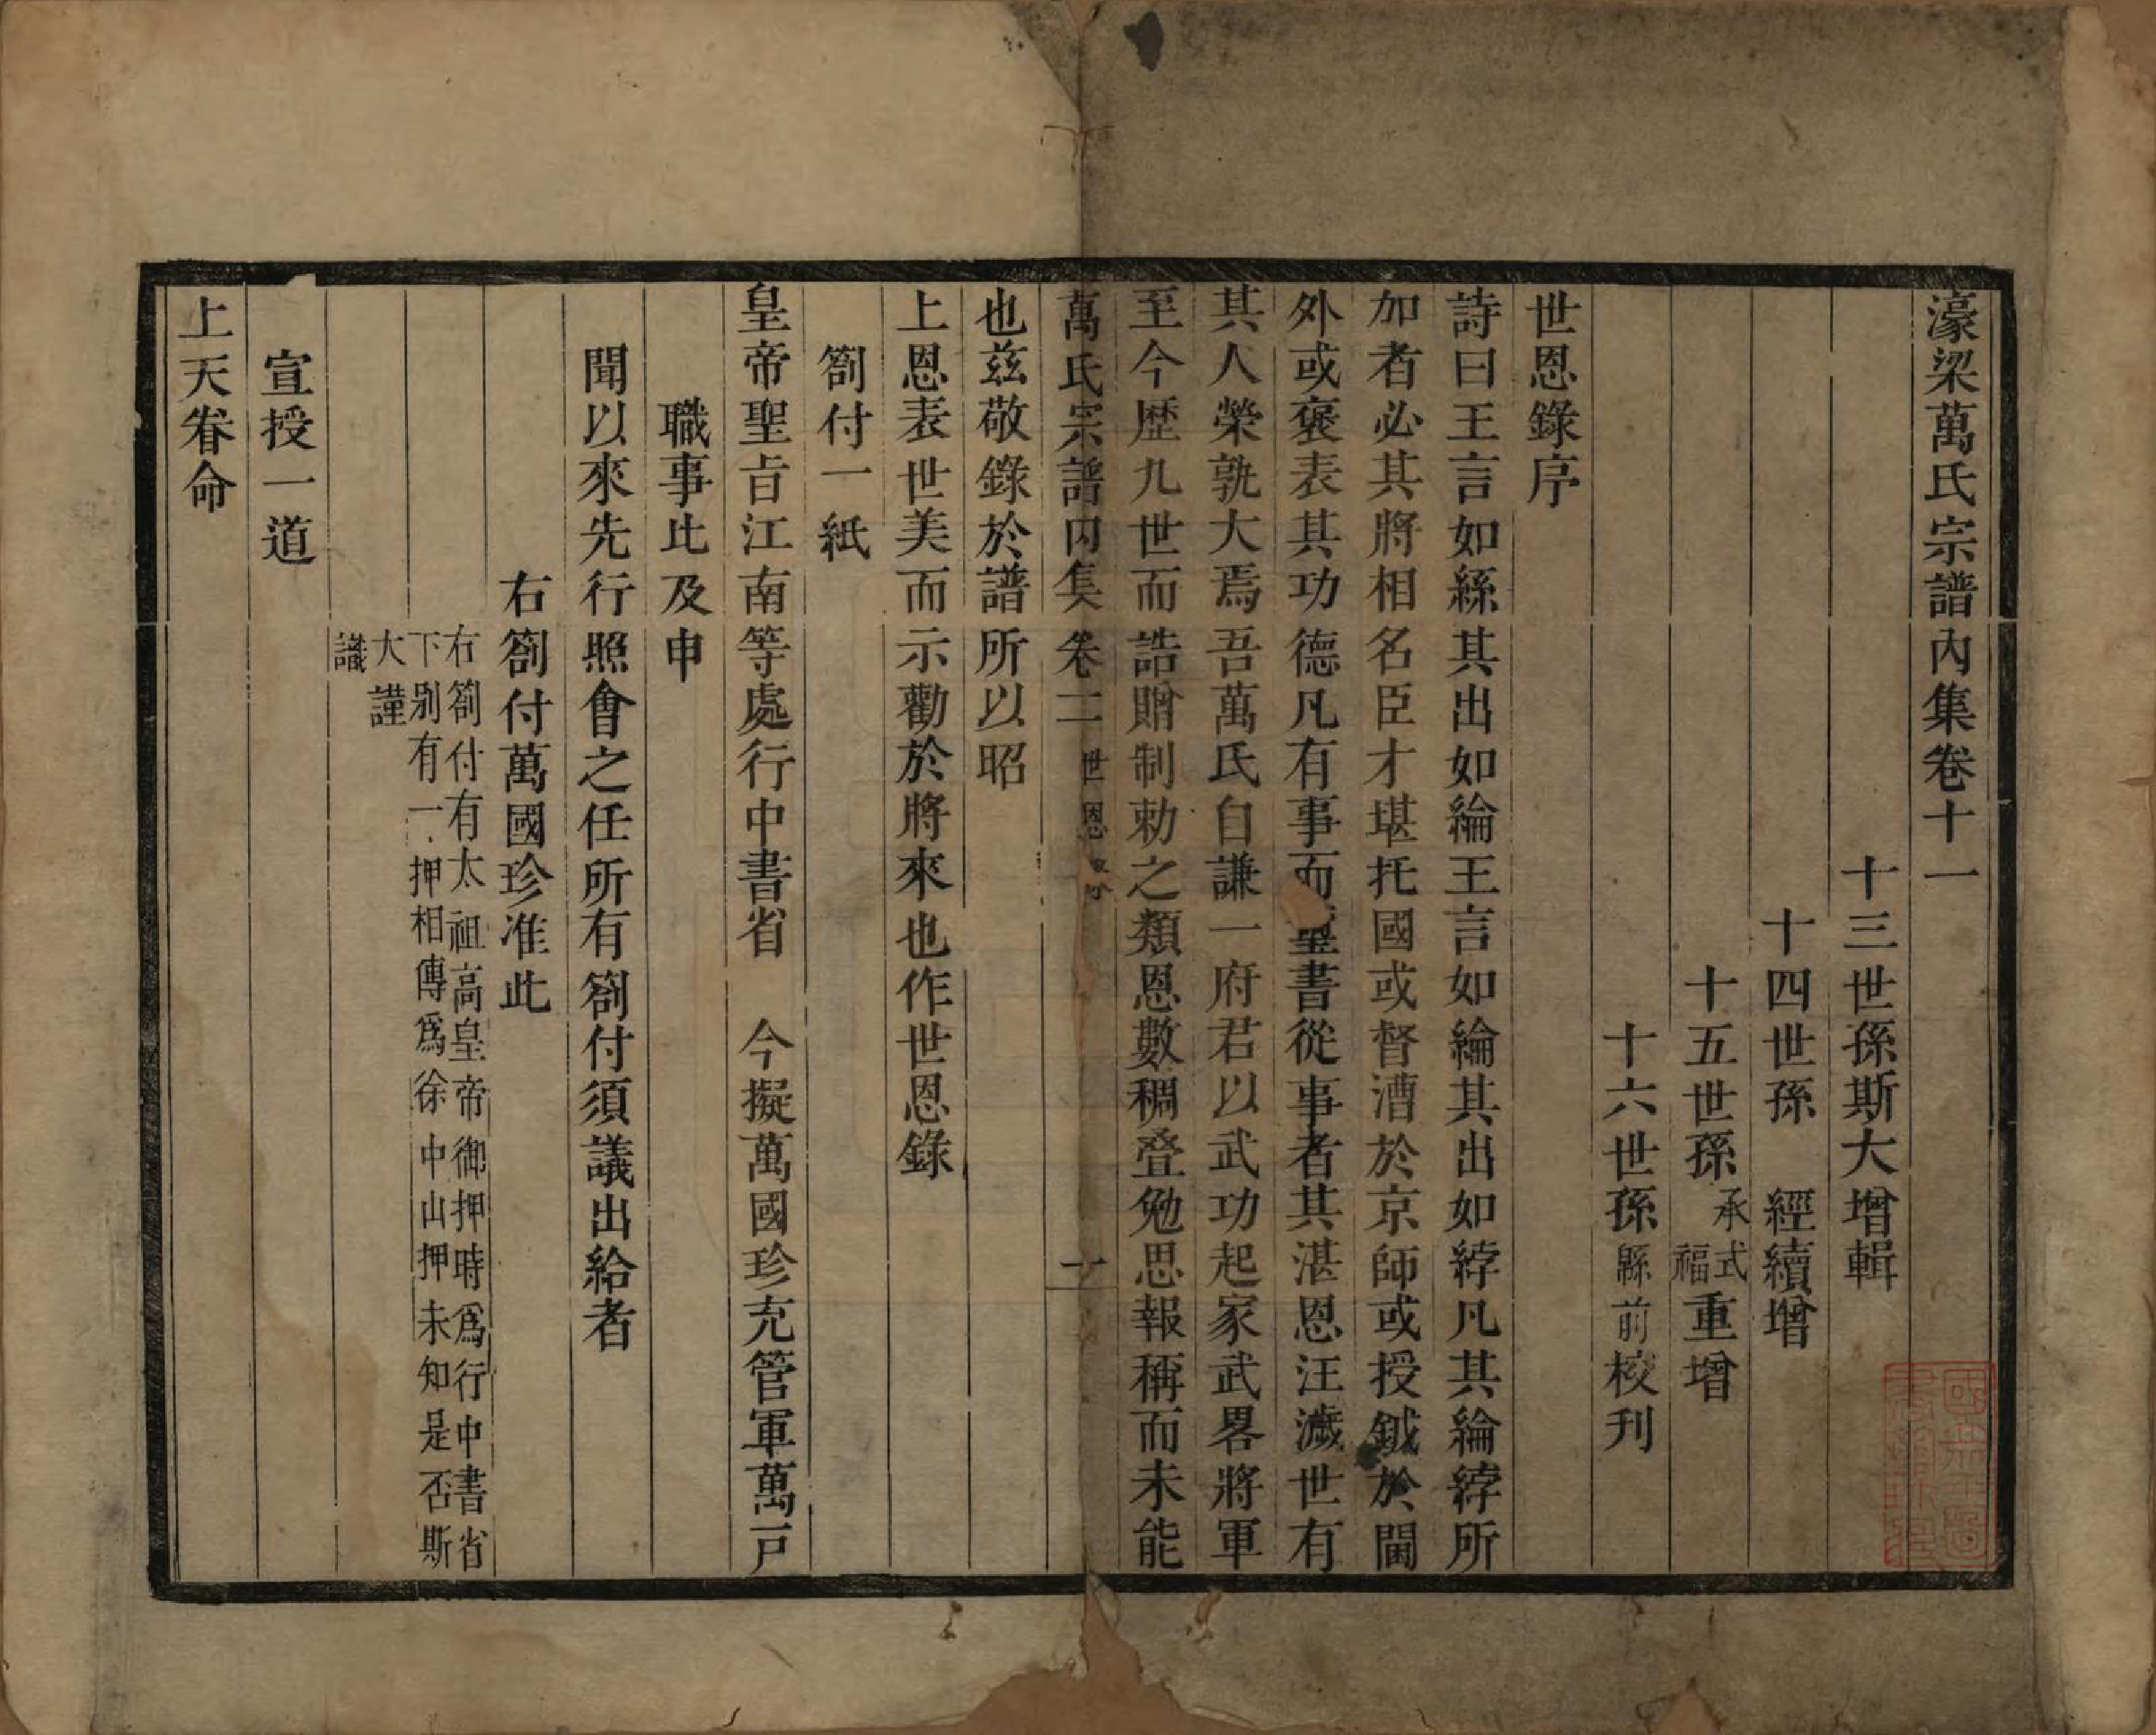 濠梁萬氏宗譜內集卷十一
十三世孫斯大增輯
十四世孫　經續增
十五世孫承式福重增
十六世孫縣前校刊
世恩錄序
詩曰王言如絲其出如綸王言如綸其出如綍凡其綸綍所
加者必其將相名臣才堪托國或督漕於京師或授鉞於閫
外或褒表其功德凡有事而璽書從事者其湛恩汪濊世有
其人榮孰大焉吾萬氏自謙一府君以武功起家武畧將軍
至今歷九世而誥贈制勅之類恩數稠叠勉思報稱而未能
萬氏宗譜內集　卷一　世恩　一
也兹敬錄於譜所以昭
上恩表世美而示勸於將來也作世恩錄
劄付一紙
皇帝聖旨江南等處行中書省　今擬萬國珍充管軍萬戸
職事比及申
聞以來先行照會之任所有劄付須議出給者
右劄付萬國珍准此
右劄付有太祖高皇帝御押時爲行中書省
下別有一押相傳爲徐中山押未知是否斯
大謹
識
宣授一道
上天眷命